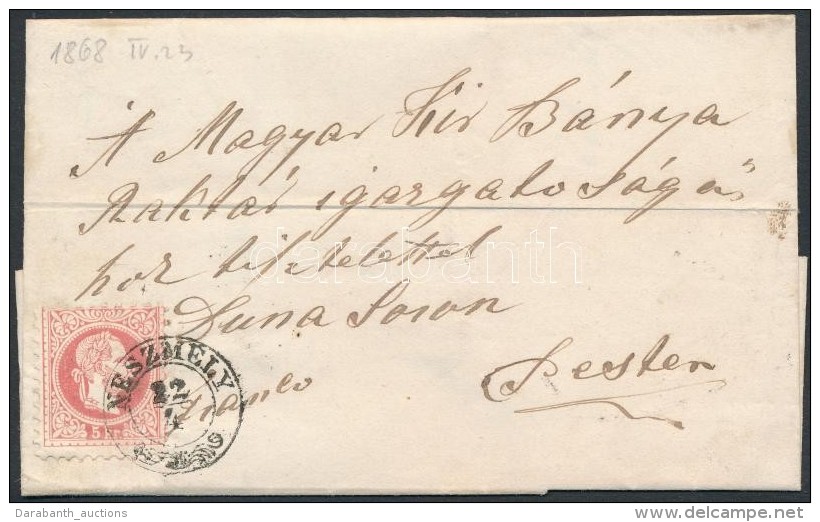 1868 IV. 23
A Magyar Kir Bánya
Raktár igazgatósága
hoz tisztelettel
Duna Soron
Pesten
franco
NESZMELY
22
4
5 kr
darabanth
Darabanth_auctions
www.delcampe.net